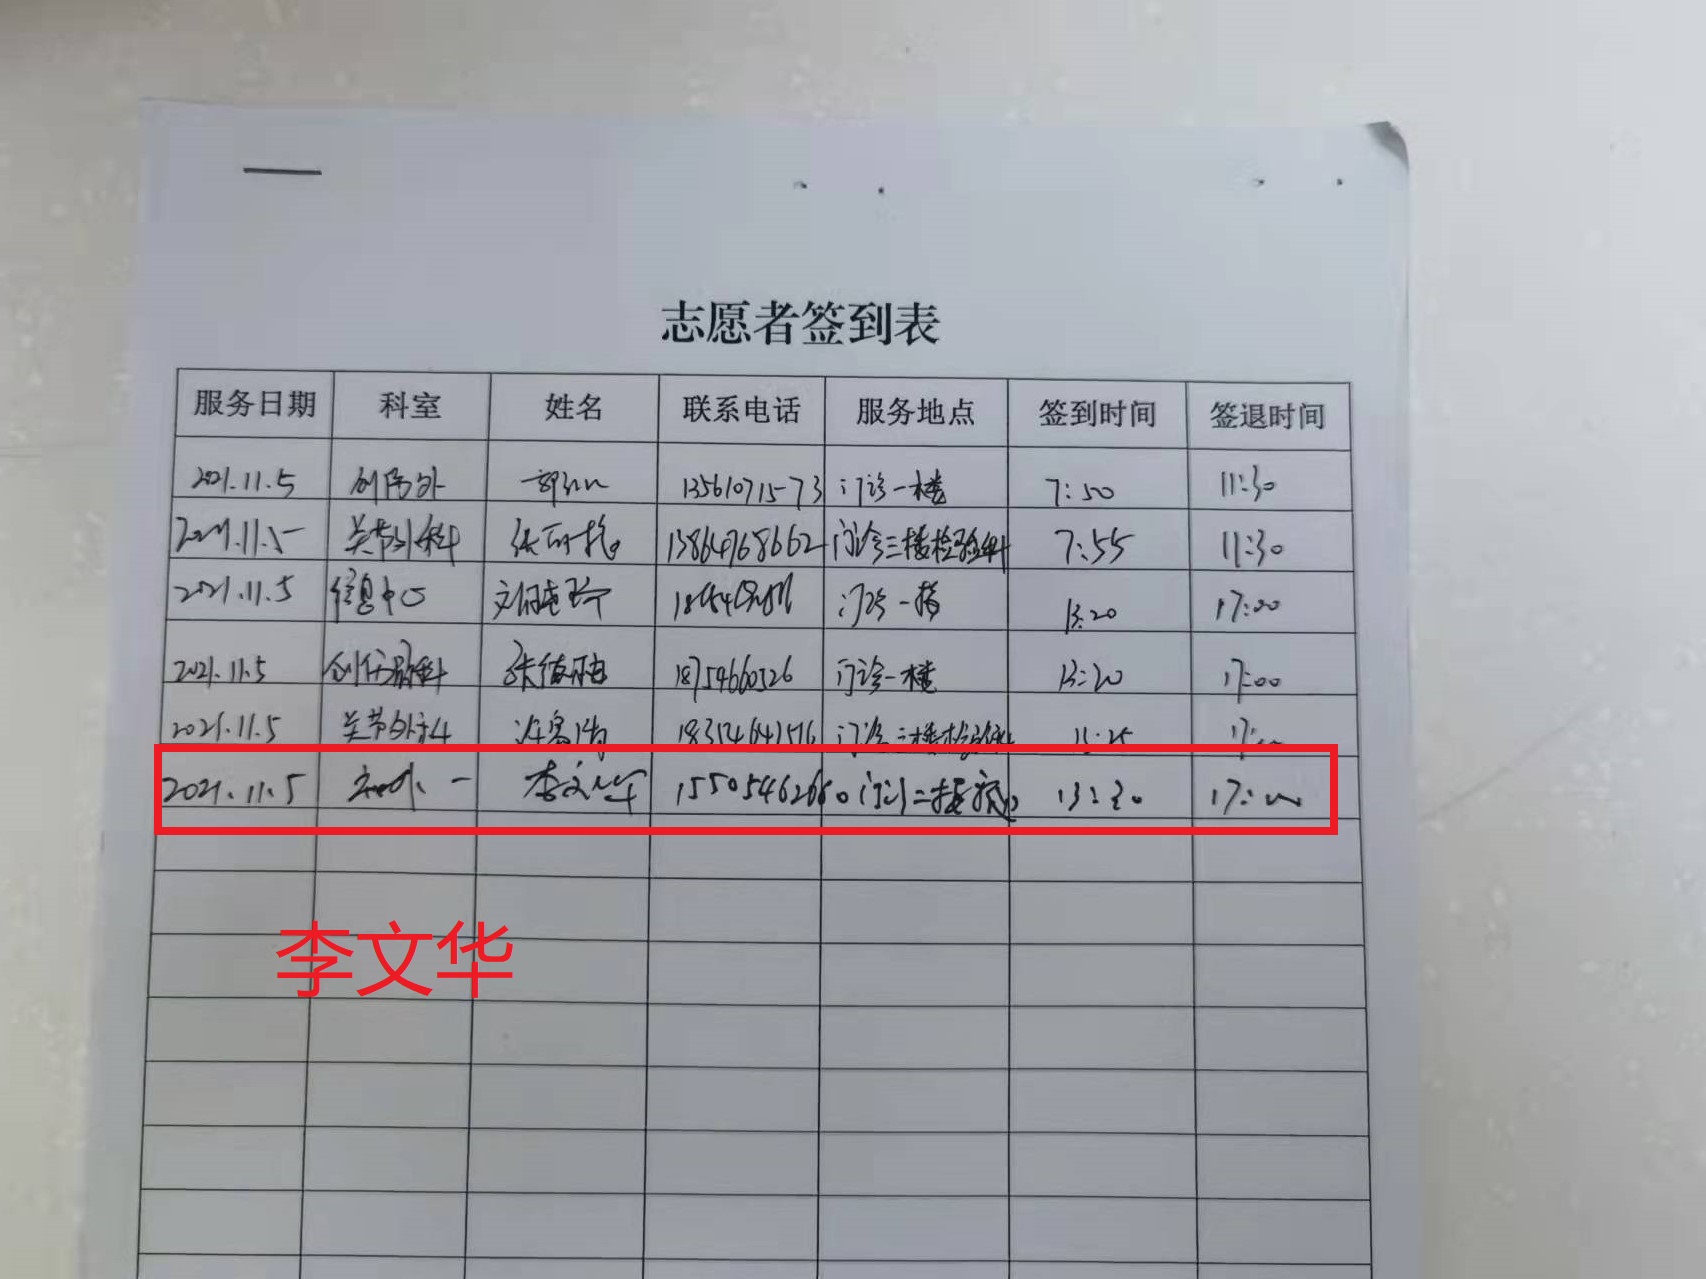 志愿者签到表
服务日期 科室 姓名 联系电话 服务地点 签到时间 签退时间
2021.11.5 创伤外 郭 13561071573 门诊一楼 7:50 11:30
2021.11.5 关节外科 张 13864768662 门诊三楼检验科 7:55 11:30
2021.11.5 信息中心 门诊一楼 13:20 17:00
2021.11.5 张德 18754660526 门诊一楼 13:20 17:00
2021.11.5 关节外科 门诊三楼检验科 17:00
2021.11.5 李文华 15505462660 门诊二楼 13:30 17:00
李文华